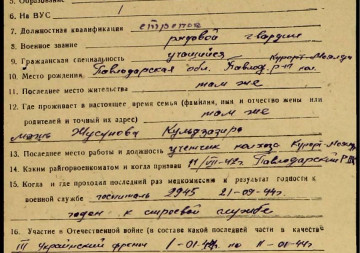 5. Образование
6. На ВУС
7. Должностная квалификация стрелок
8. Военное звание рядовой гвардии
9. Гражданская специальность учащийся
10. Место рождения Павлодарская обл. Павлод. р-н кол. Курорт-Моялда
11. Последнее место жительства там же
12. Где проживает в настоящее время семья (фамилия, имя и отчество жены или
родителей и точный их адрес) там же
мать Жусунова
13. Последнее место работы и должность колхоза Курорт-Моялда
14. Каким райгорвоенкоматом и когда призван 11/VII-42г. Павлодарский РВК
15. Когда и где проходил последний раз медкомиссию и результат годности к
военной службе госпиталь 2945 21-09-44г
годен к строевой службе
16. Участие в Отечественной войне (в составе какой последней части в качестве
III Украинский фронт 1-01-44г. по 11-01-44г.